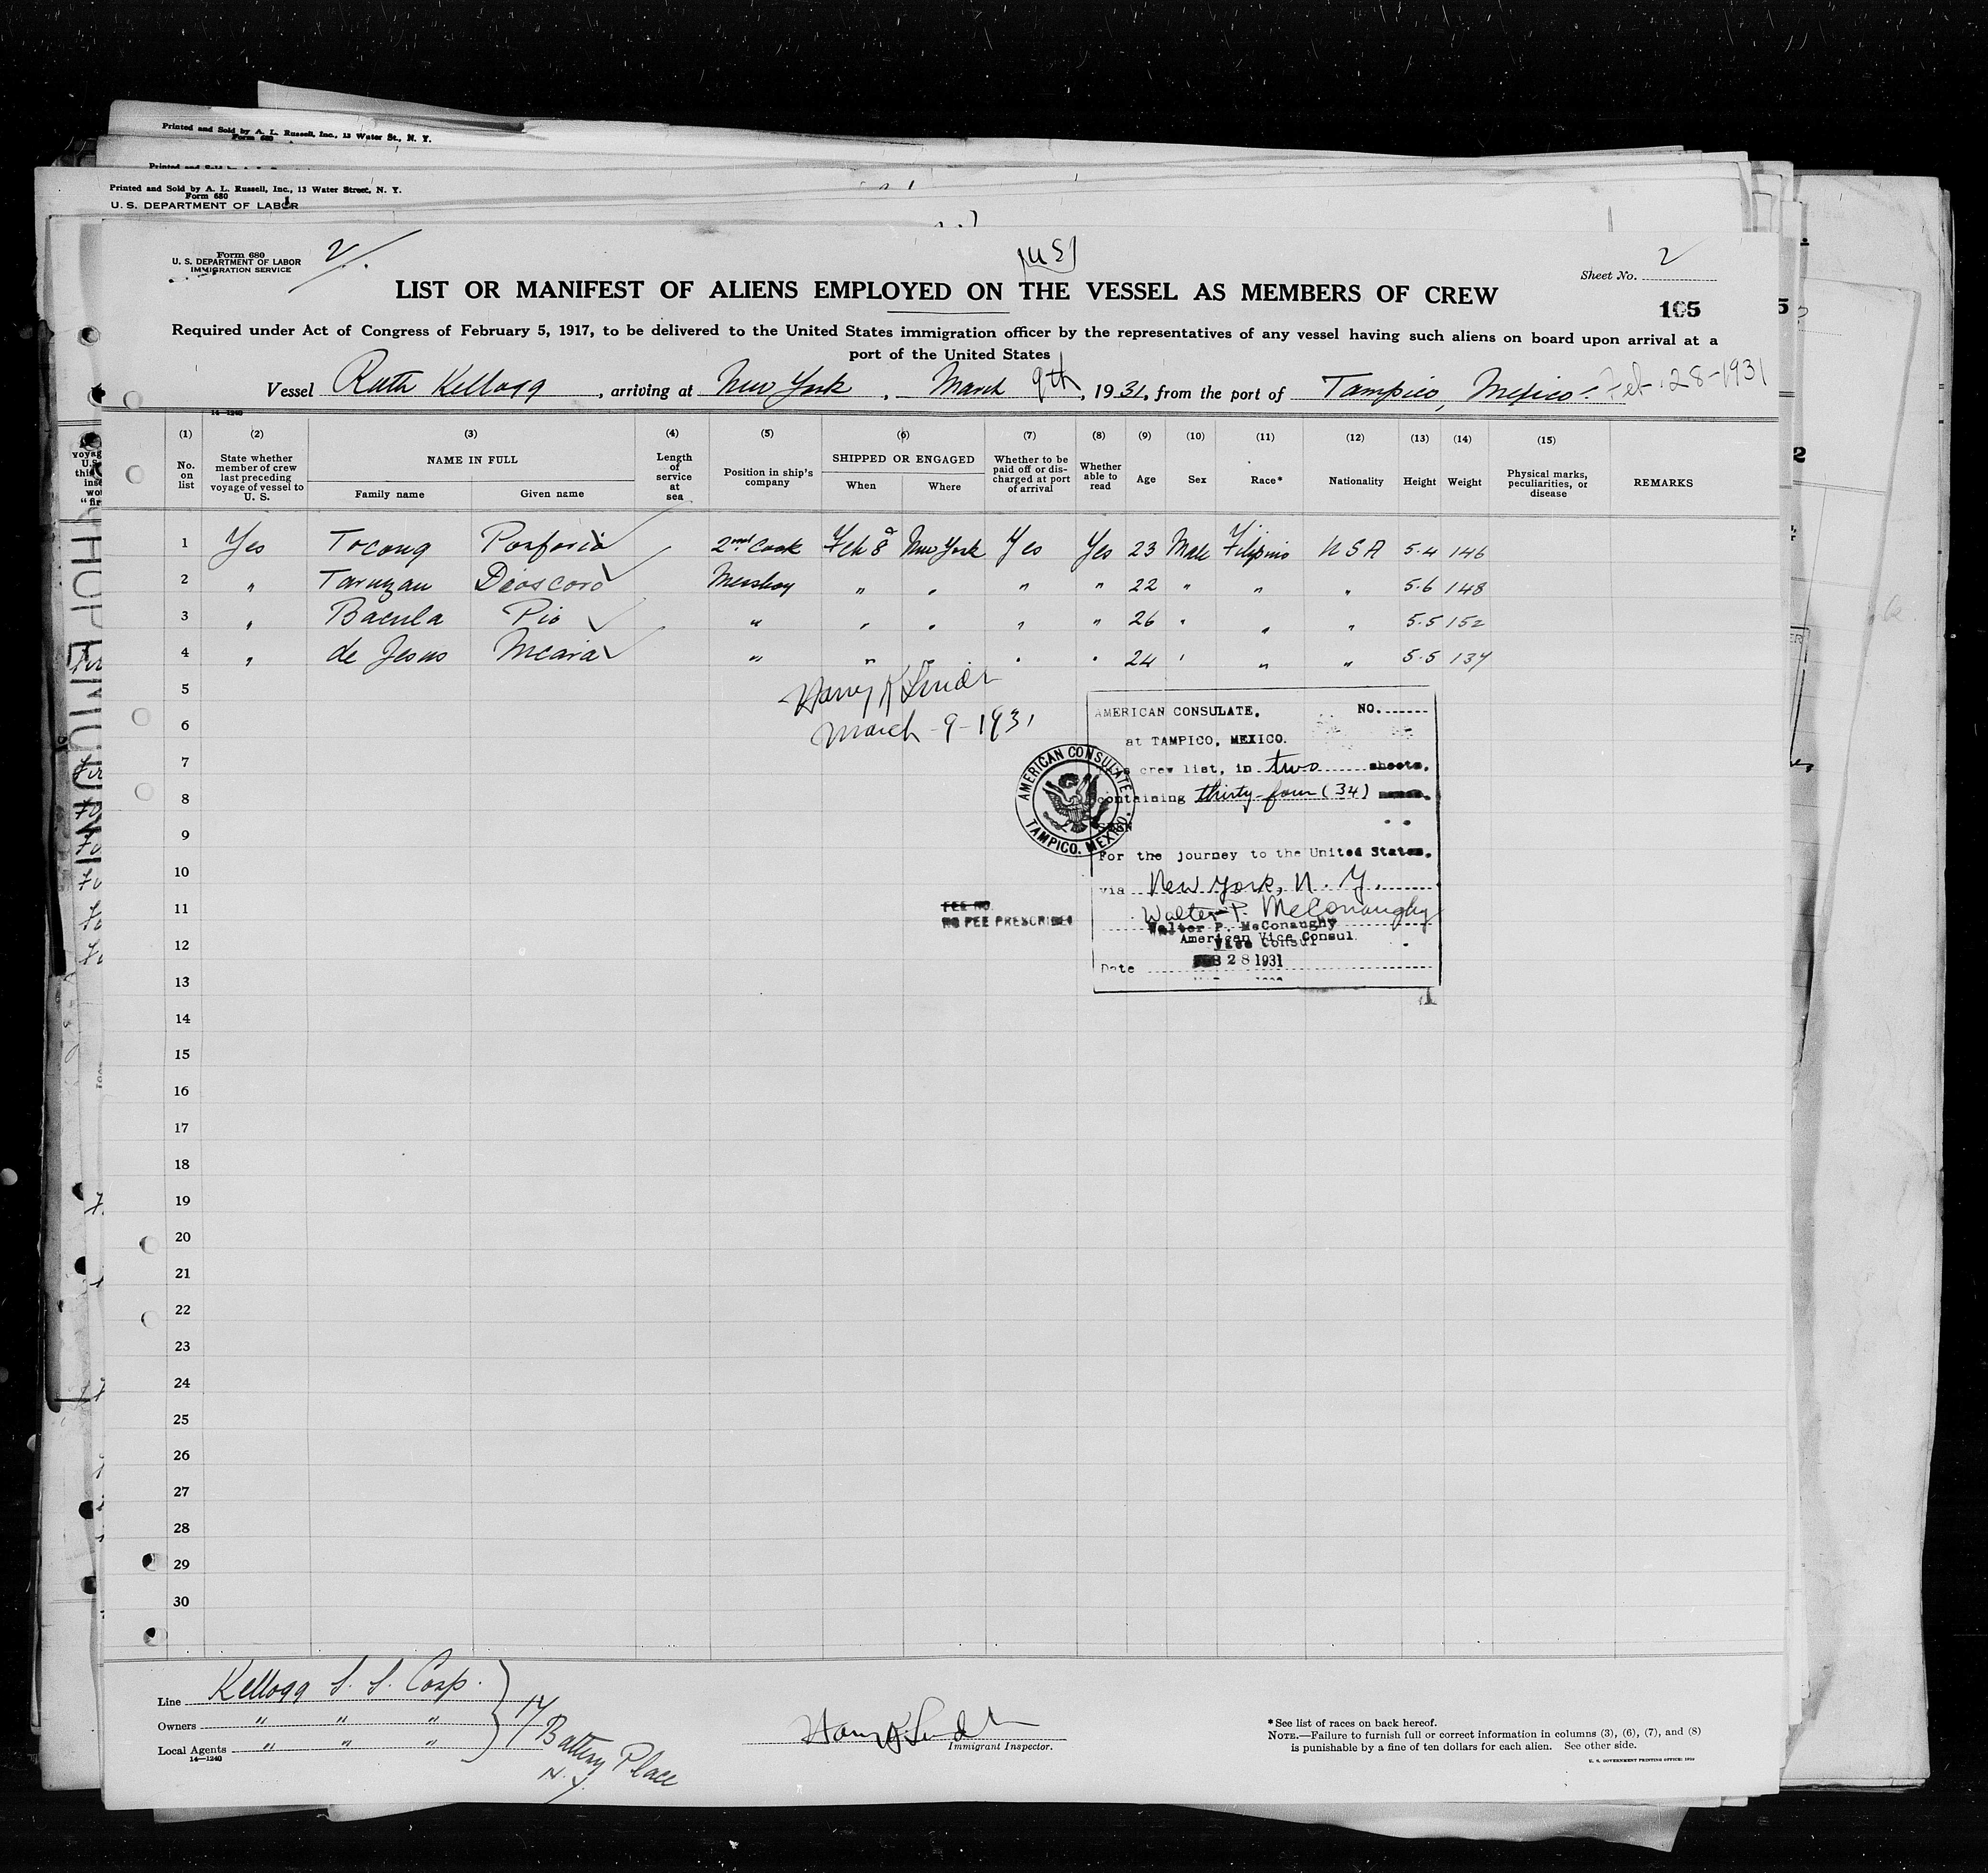 Printed and Sold by A. L. Russell, Inc., 13 Water St., N. Y.
Form 680
Printed and Sold by A. L. Russell, Inc., 13 Water Street, N. Y.
Form 680
U. S. DEPARTMENT OF LABOR
Form 680
U. S. DEPARTMENT OF LABOR
IMMIGRATION SERVICE
2
Sheet No. 2
LIST OR MANIFEST OF ALIENS EMPLOYED ON THE VESSEL AS MEMBERS OF CREW
105
Required under Act of Congress of February 5, 1917, to be delivered to the United States immigration officer by the representatives of any vessel having such aliens on board upon arrival at a
port of the United States
Vessel Ruth Kellogg, arriving at New York, March 9th, 1931, from the port of Tampico, Mexico. Feb. 28-1931
14—1240
(1) (2) (3) (4) (5) (6) (7) (8) (9) (10) (11) (12) (13) (14) (15)
No. on list
State whether member of crew last preceding voyage of vessel to U. S.
NAME IN FULL
Family name
Given name
Length of service at sea
Position in ship's company
SHIPPED OR ENGAGED
When
Where
Whether to be paid off or discharged at port of arrival
Whether able to read
Age
Sex
Race*
Nationality
Height
Weight
Physical marks, peculiarities, or disease
REMARKS
1 Yes Tocong Porforio 2nd Cook Feb 8 New York Yes Yes 23 Male Filipino U S A 5.4 146
2 " Taruzan Dioscoro Messboy " " " " 22 " " " 5.6 148
3 " Bacula Pio " " " " " 26 " " " 5.5 152
4 " de Jesus " " " " " 24 " " " 5.5 137
5
March - 9 - 1931
6
7
8
9
10
11
12
13
14
15
16
17
18
19
20
21
22
23
24
25
26
27
28
29
30
AMERICAN CONSULATE, NO.
at TAMPICO, MEXICO.
crew list, in two sheets,
containing thirty-four (34)
For the journey to the United States.
via New York, N. Y.
Walter P. McConaughy
Walter P. McConaughy
American Vice Consul
Vice Consul
Date FEB 28 1931
AMERICAN CONSULATE
TAMPICO, MEXICO.
FEE NO.
NO FEE PRESCRIBED
Line Kellogg S. S. Corp.
Owners " " "
Local Agents " " "
14—1240
17 Battery Place
N. Y.
Immigrant Inspector.
*See list of races on back hereof.
NOTE.—Failure to furnish full or correct information in columns (3), (6), (7), and (8)
is punishable by a fine of ten dollars for each alien. See other side.